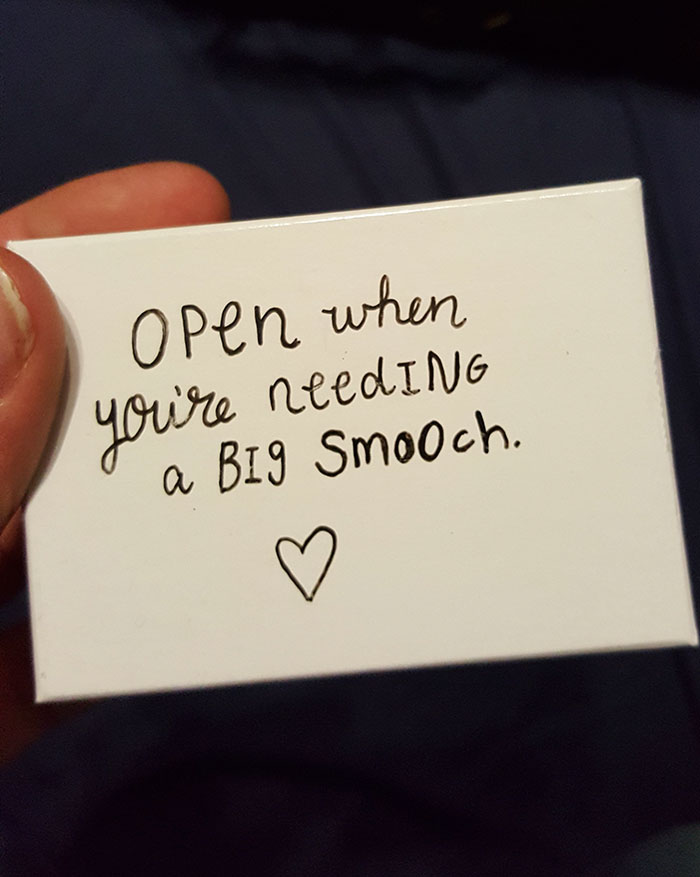 OPEn when
you're needING
a BIg SmOOch.